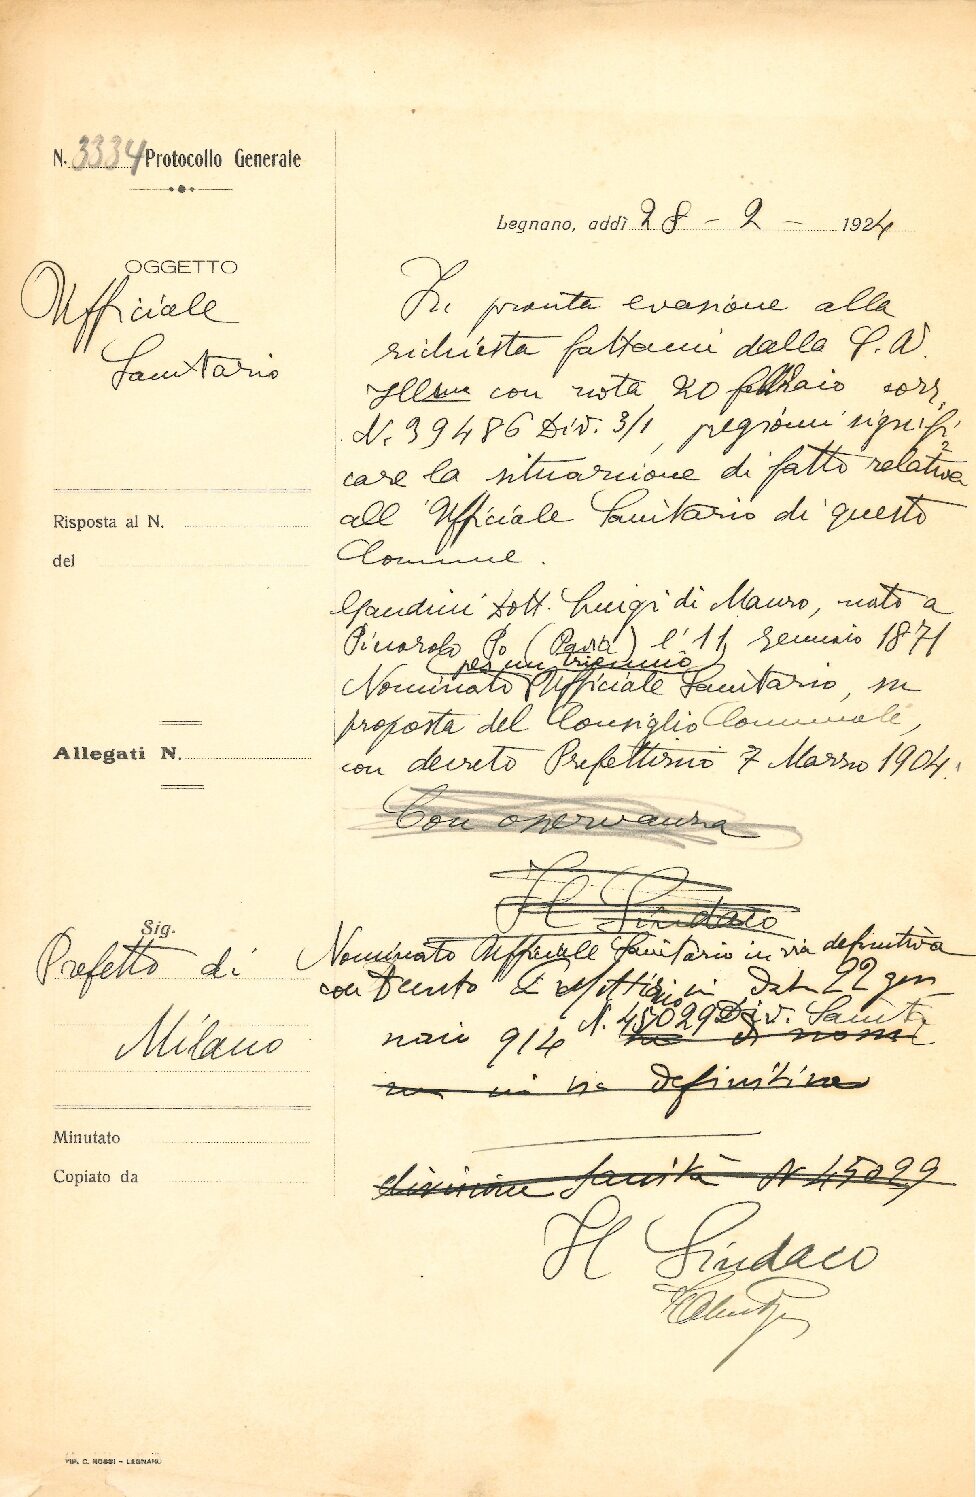 N. 3334 Protocollo Generale
Legnano, addì 28 - 2 - 1924
OGGETTO
Ufficiale
Sanitario
Risposta al N.
del
Allegati N.
Sig.
Prefetto di
Milano
Minutato
Copiato da
In pronta evasione alla
richiesta fattami dalla S.V.
Illma con nota 20 febbraio corr.
N. 39486 Div. 3/1, pregiomi signifi
care la situazione di fatto relativa
all'Ufficiale Sanitario di questo
Comune.
Gandini Dott. Luigi di Mauro, nato a
Pinarolo Po (Pavia) l'11 gennaio 1871
(per un triennio)
Nominato Ufficiale Sanitario, su
proposta del Consiglio Comunale,
con decreto Prefettizio 7 Marzo 1904.
Con osservanza
Il Sindaco
Nominato Ufficiale Sanitario in via definitiva
con Decreto Prefettizio in data 22 gen
naio 914 N. 45029 Div. Sanit.
in via definitiva
divisione Sanità N 45029
Il Sindaco
TIP. C. ROSSI - LEGNANO